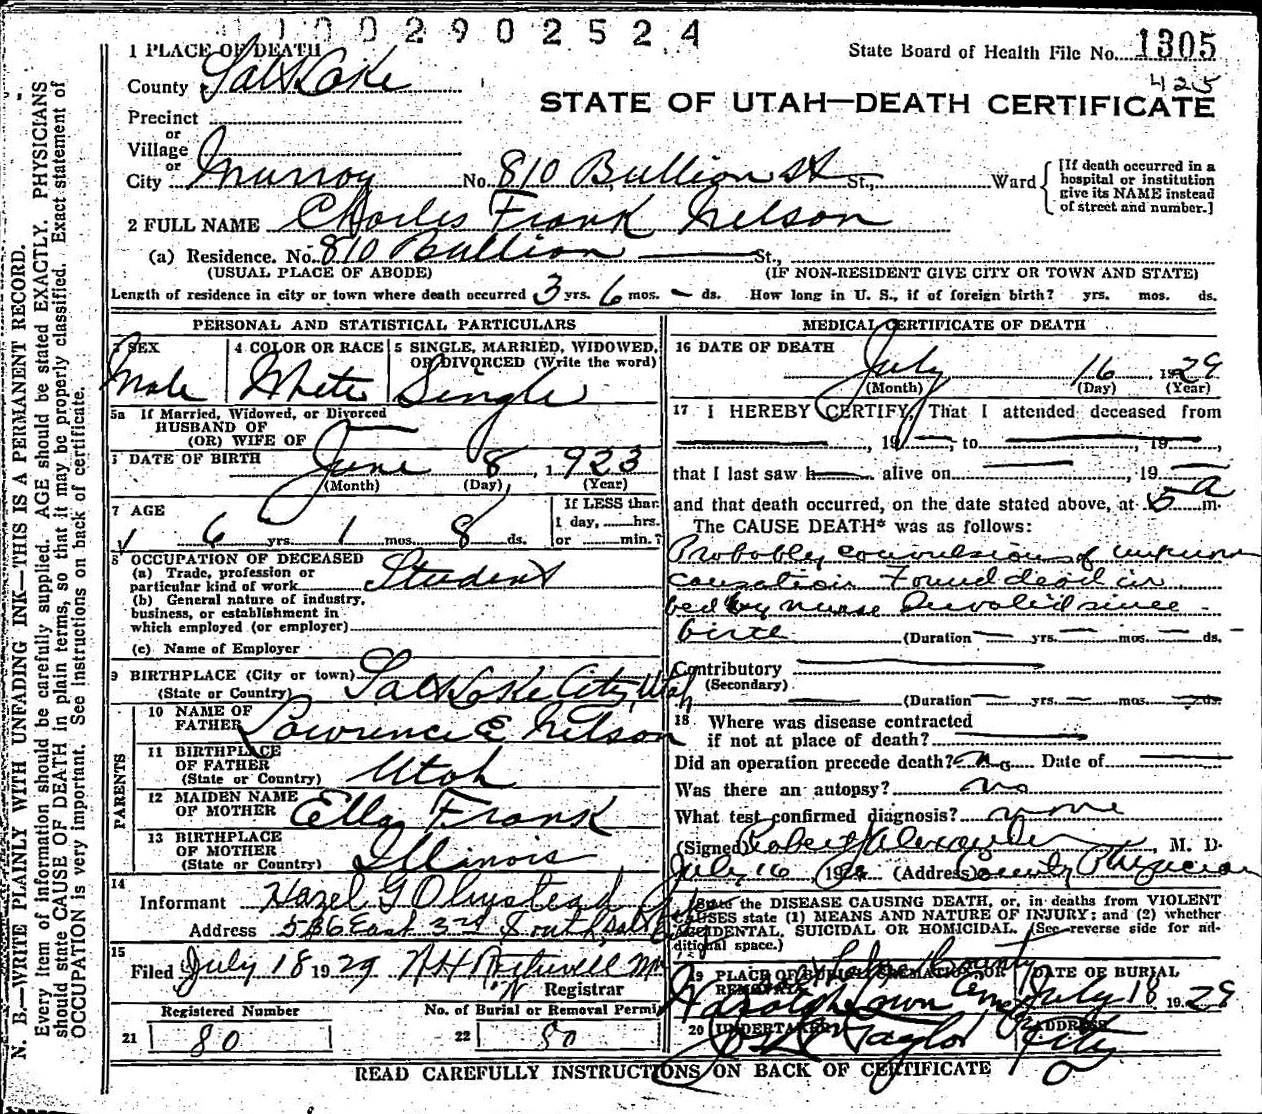 1002902524
1 PLACE OF DEATH
State Board of Health File No. 1305
425
County Salt Lake
STATE OF UTAH—DEATH CERTIFICATE
Precinct
or
Village
or
City Murray No. 810 Bullion St St., Ward
[If death occurred in a hospital or institution give its NAME instead of street and number.]
2 FULL NAME Charles Frank Nelson
(a) Residence. No. 810 Bullion St.,
(USUAL PLACE OF ABODE) (IF NON-RESIDENT GIVE CITY OR TOWN AND STATE)
Length of residence in city or town where death occurred 3 yrs. 6 mos. – ds. How long in U. S., if of foreign birth? yrs. mos. ds.
PERSONAL AND STATISTICAL PARTICULARS
3 SEX
Male
4 COLOR OR RACE
White
5 SINGLE, MARRIED, WIDOWED,
OR DIVORCED (Write the word)
Single
5a If Married, Widowed, or Divorced
HUSBAND OF
(OR) WIFE OF
DATE OF BIRTH June 8, 1923
(Month) (Day) (Year)
7 AGE
6 yrs. 1 mos. 8 ds.
If LESS than
1 day, hrs.
or min.?
8 OCCUPATION OF DECEASED
(a) Trade, profession or
particular kind of work Student
(b) General nature of industry,
business, or establishment in
which employed (or employer)
(c) Name of Employer
9 BIRTHPLACE (City or town)
(State or Country) Salt Lake City, Utah
PARENTS
10 NAME OF
FATHER Lawrence E Nelson
11 BIRTHPLACE
OF FATHER
(State or Country) Utah
12 MAIDEN NAME
OF MOTHER Ella Frank
13 BIRTHPLACE
OF MOTHER
(State or Country) Illinois
14
Informant Hazel G Olmstead
Address 536 East 3rd South, Salt
15
Filed July 18 1929
Registrar
Registered Number
21 80
No. of Burial or Removal Permit
22 80
MEDICAL CERTIFICATE OF DEATH
16 DATE OF DEATH
July 16, 1929
(Month) (Day) (Year)
17 I HEREBY CERTIFY, That I attended deceased from
, 19 to 19 ,
that I last saw h alive on , 19
and that death occurred, on the date stated above, at 5 a m.
The CAUSE DEATH* was as follows:
Probably convulsions of unknown
causation Found dead in
bed by nurse Invalid since
birth (Duration yrs. mos. ds.
Contributory
(Secondary)
(Duration yrs. mos. ds.
18 Where was disease contracted
if not at place of death?
Did an operation precede death? No Date of
Was there an autopsy? No
What test confirmed diagnosis? none
(Signed) Robert Alexander, M. D.
July 16, 1929 (Address) County Physician
*State the DISEASE CAUSING DEATH, or, in deaths from VIOLENT
CAUSES state (1) MEANS AND NATURE OF INJURY; and (2) whether
ACCIDENTAL, SUICIDAL OR HOMICIDAL. (See reverse side for ad-
ditional space.)
19 PLACE OF BURIAL CREMATION OR
REMOVAL
Lawn Cem
DATE OF BURIAL
July 18 1929
20 UNDERTAKER
Taylor
ADDRESS
City
READ CAREFULLY INSTRUCTIONS ON BACK OF CERTIFICATE
N. B.—WRITE PLAINLY WITH UNFADING INK—THIS IS A PERMANENT RECORD.
Every item of information should be carefully supplied. AGE should be stated EXACTLY. PHYSICIANS
should state CAUSE OF DEATH in plain terms, so that it may be properly classified. Exact statement of
OCCUPATION is very important. See instructions on back of certificate.